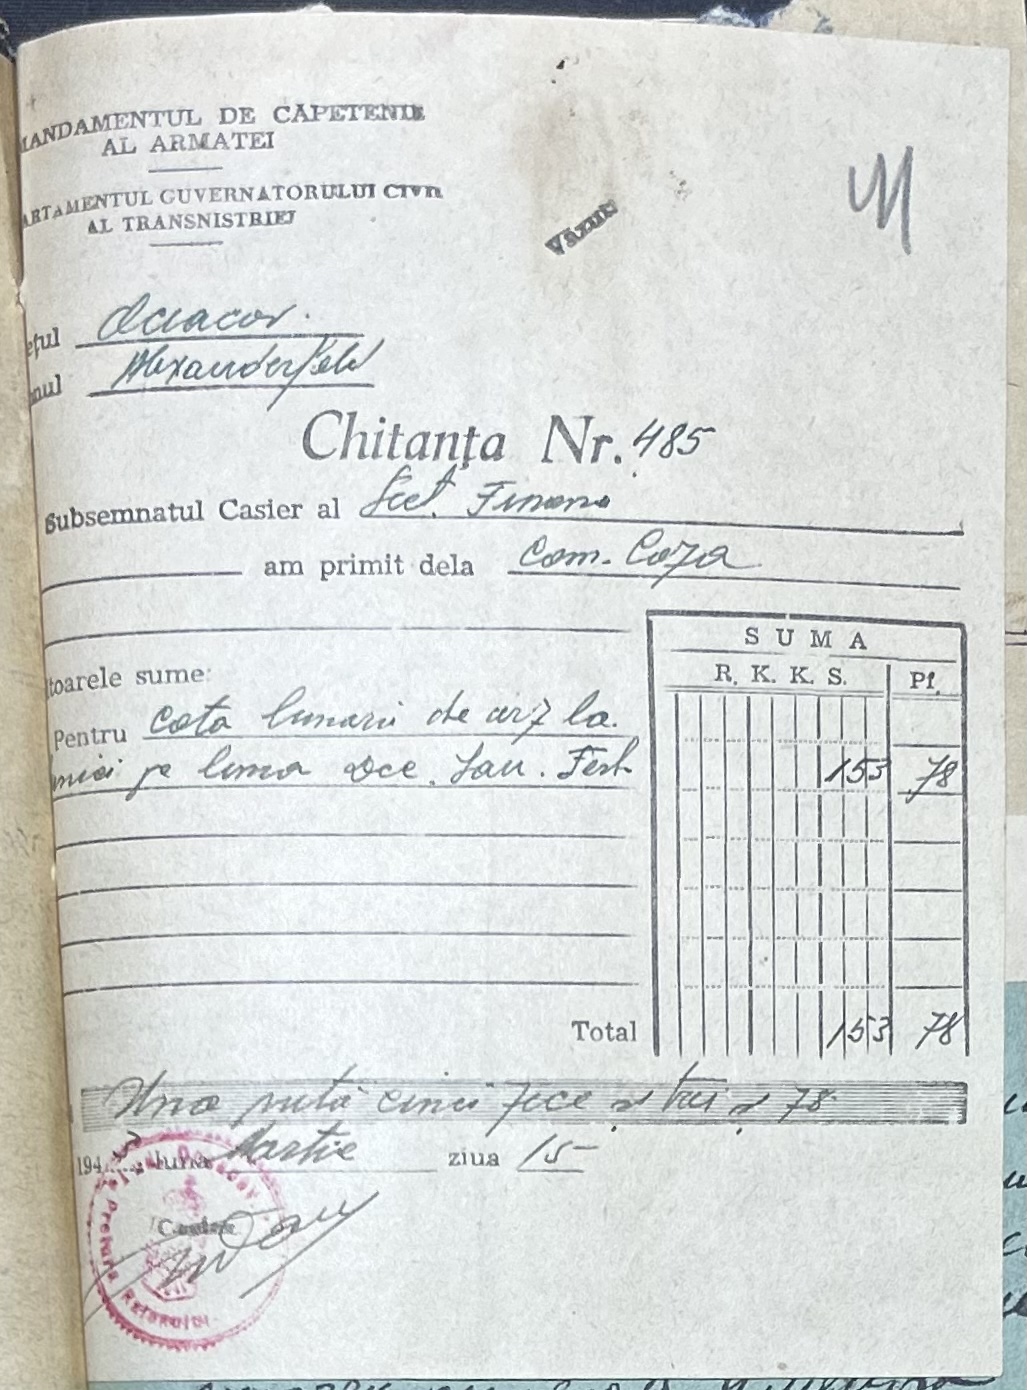 MANDAMENTUL DE CAPETENIE
AL ARMATEI
ARTAMENTUL GUVERNATORULUI CIVIL
AL TRANSNISTRIEI
Văzut
ețul Ociacov.
nul Alexanderfeld
Chitanța Nr. 485
Subsemnatul Casier al Sect. Financ
am primit dela Com. Coza
SUMA
R. K. K. S. Pf.
toarele sume:
Pentru cota lunară de
pe luna Dce. Ian. Feb
153 78
Total 153 78
Una sută cinci zece și trei și 78
194 3 luna Martie ziua 15
Casier
Pretura Raionului